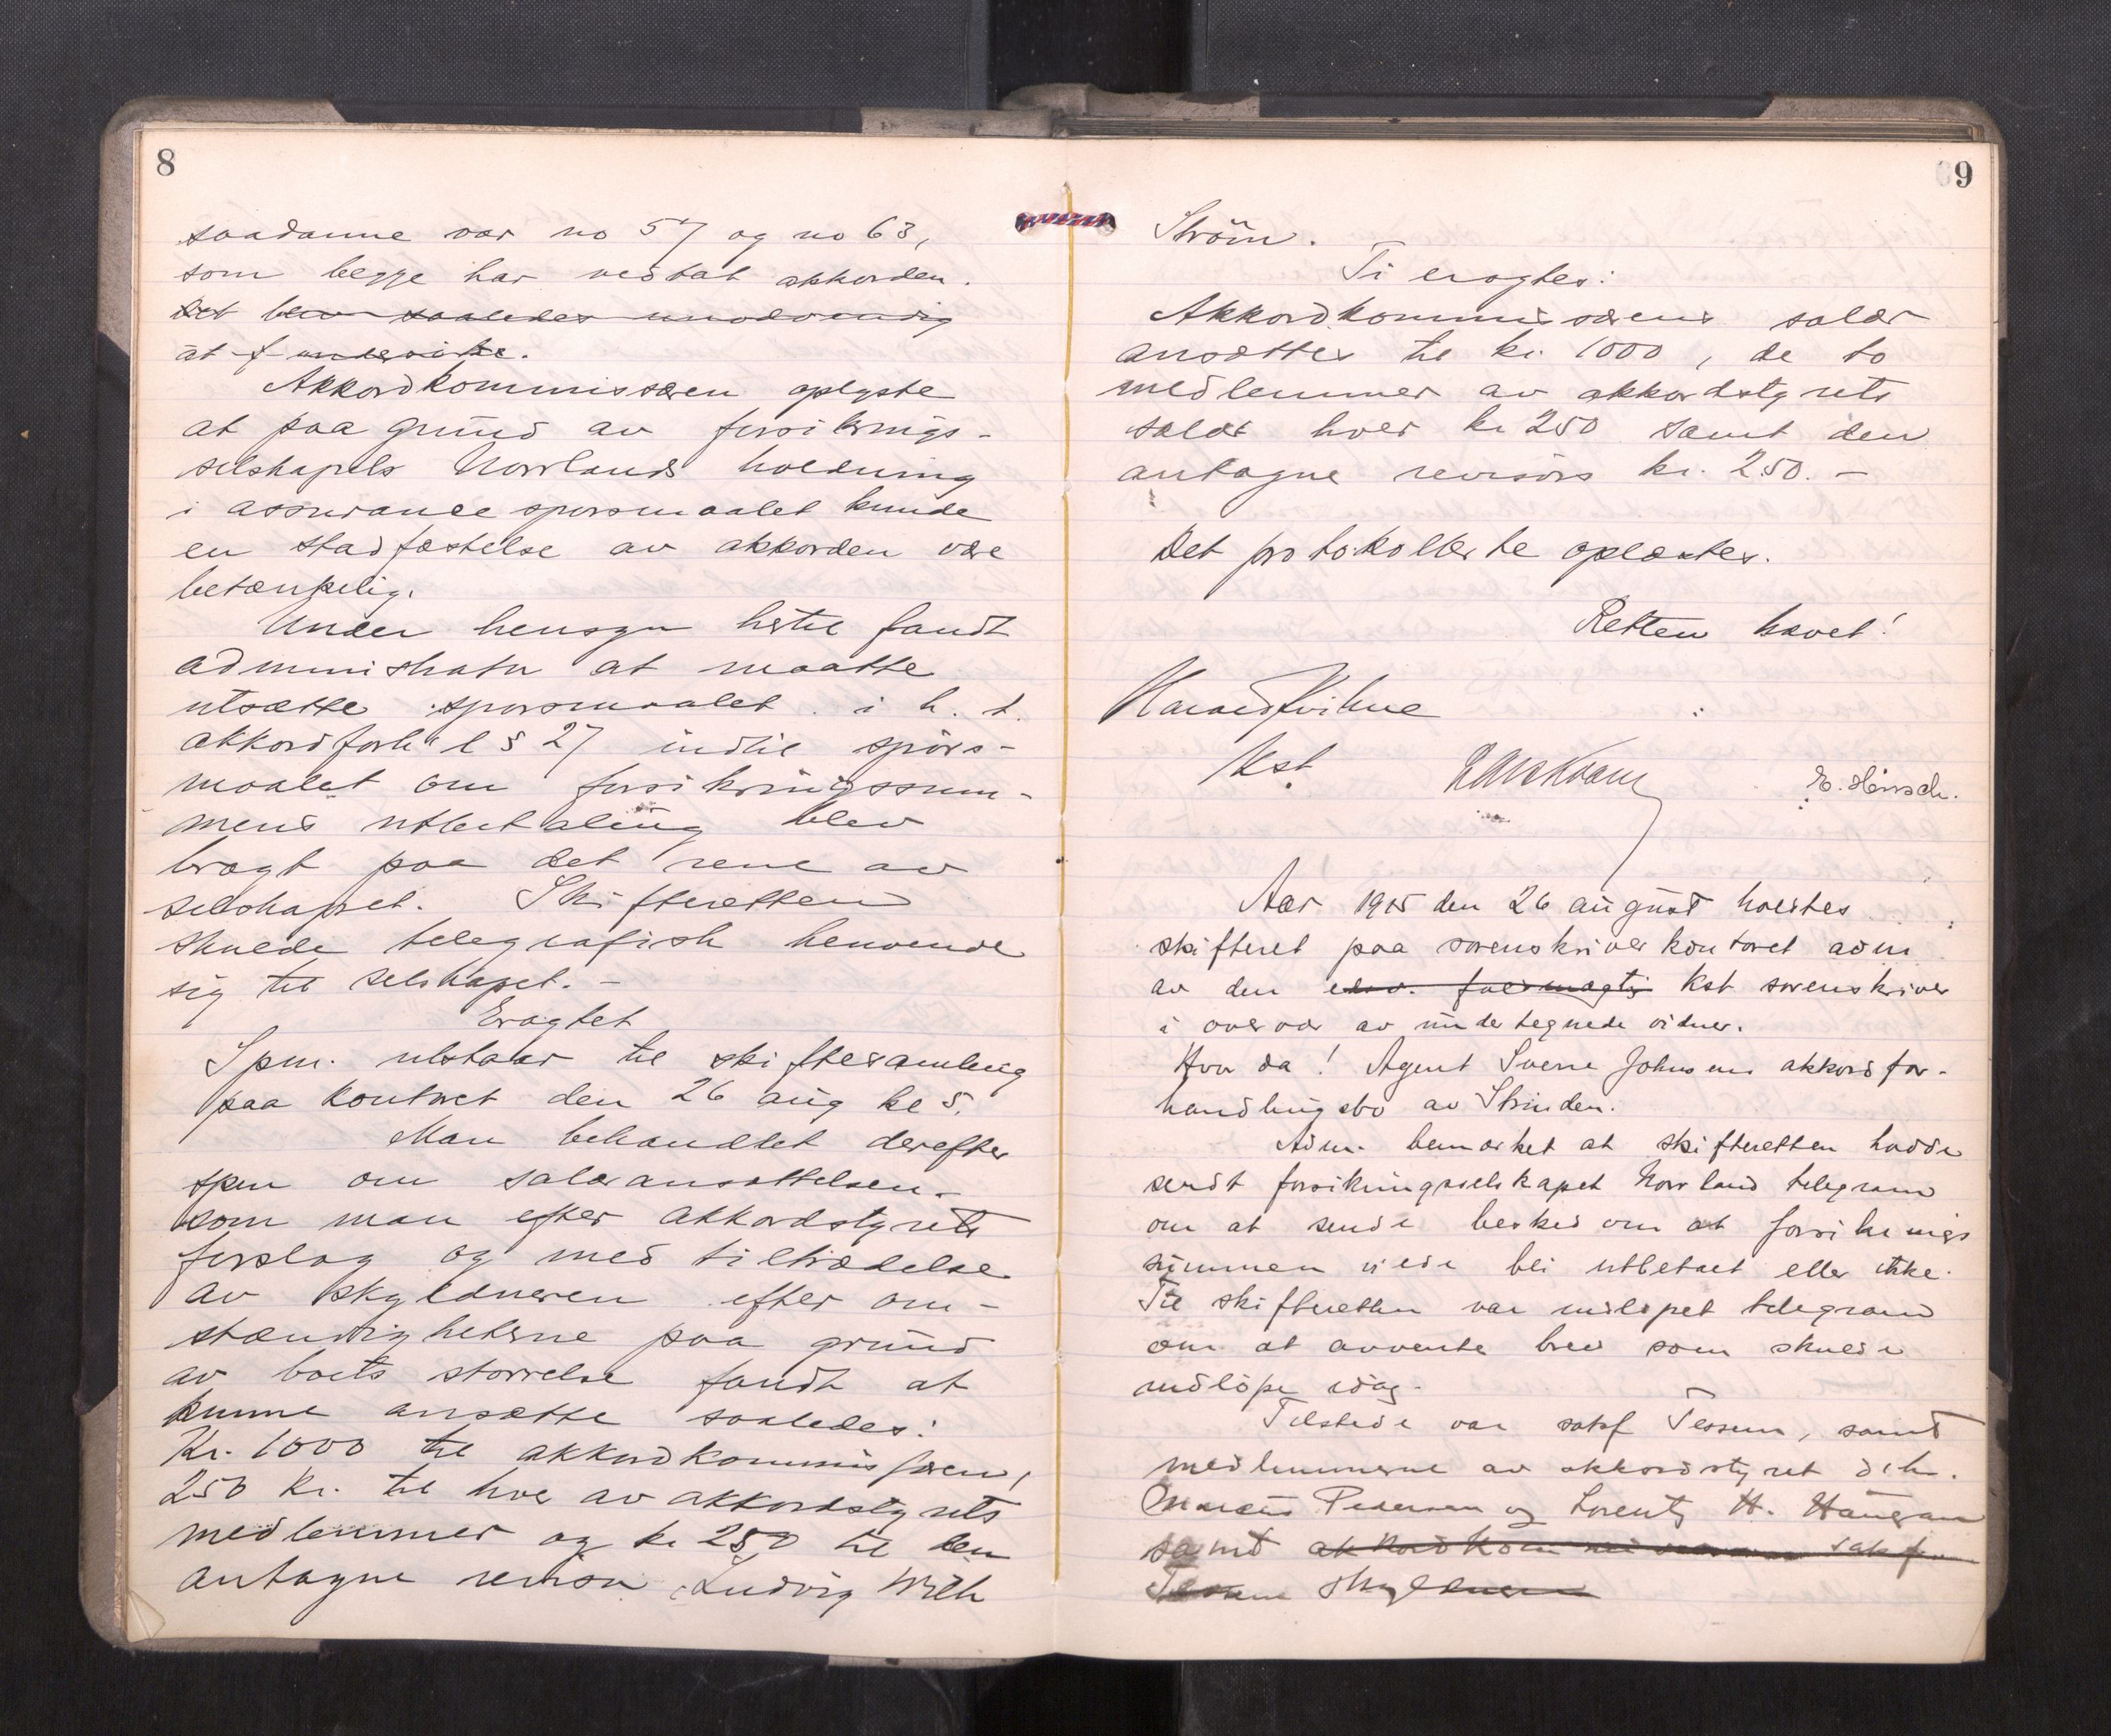 8
saadanne var no 57 og no 63,
som begge har vedtat akkorden.
Det blev saaledes unødvendig
at f underrette.
Akkordkommissæren oplyste
at paa grund av forsikrings-
selskapets Norrlands holdning
i assurancespørsmaalet kunde
en stadfæstelse av akkorden være
betænkelig.
Under hensyn hertil fandt
administrator at maatte
utsætte spørsmaalet i h. t.
akkordforh l § 27 indtil spørs-
maalet om forsikringssum-
mens utbetaling blev
bragt paa det rene av
selskapet. Skifteretten
skulde telegrafisk henvende
sig til selskapet. –
Eragtet
Spm. utstaar til skiftesamling
paa kontoret den 26 aug kl 5.
Man behandlet derefter
spm om salæransættelsen
som man efter akkordstyrets
forslag og med tiltrædelse
av skyldneren efter om-
stændigheterne paa grund
av boets størrelse fandt at
kunne ansætte saaledes:
Kr. 1000 til akkordkommissæren,
250 kr. til hver av akkordstyrets
medlemmer og kr 250 til den
antagne revisor Ludvig Wilh
9
Strøm.
Ti eragtes:
Akkordkommissærens salær
ansættes til kr. 1000, de to
medlemmer av akkordstyrets
salær hver kr 250 samt den
antagne revisors kr. 250. –
Det protokollerte oplæstes.
Retten hævet!
Kst
E. Hirsch.
Aar 1915 den 26 august holdtes
skifteret paa sorenskriverkontoret adm
av den edsv. fuldmægtig Kst sorenskriver
i overvær av undertegnede vidner.
Hvor da! Agent Sverre Johnsens akkordfor-
handlingsbo av Strinden.
Adm. bemærket at skifteretten hadde
sendt forsikringsselskapet Norrland telegram
om at sende besked om at forsikrings
summen vilde bli utbetalt eller ikke.
Til skifteretten var indløpet telegram
om at avvente brev som skulde
indløpe idag.
Tilstede var sakf Tessem, samt
medlemmerne av akkordstyret dHr.
Marius Pedersen og Lorentz H. Haugan
samt akkordkommissæren sakfører
Tessem skyldneren